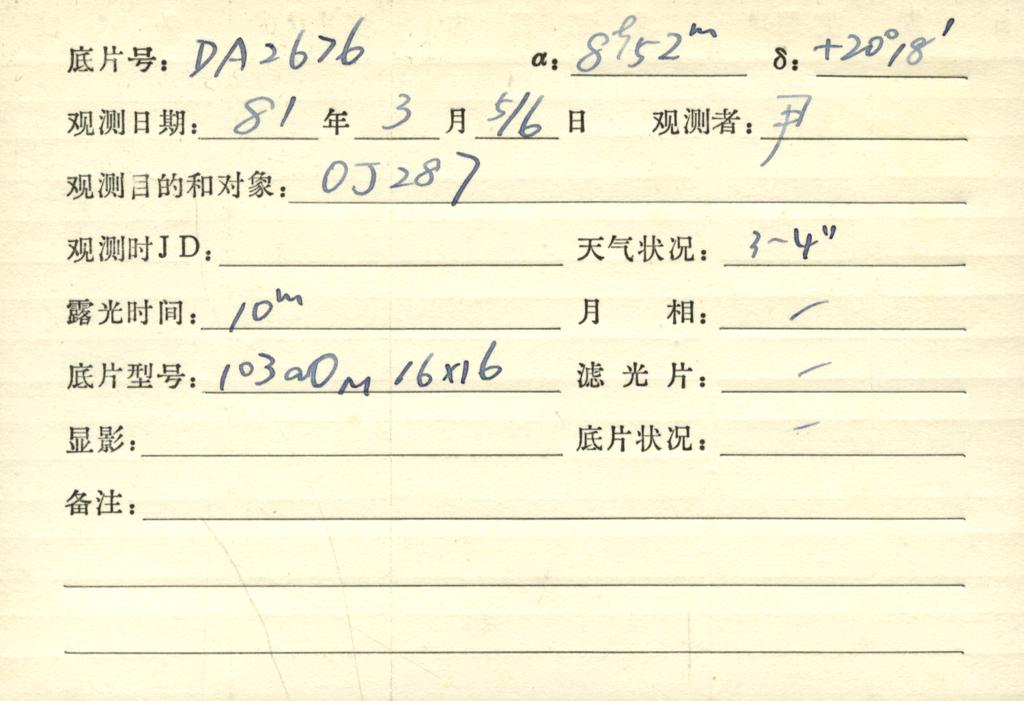 底片号: DA2676 α: 8h52m δ: +20°18′
观测日期: 81 年 3 月 5/6 日 观测者:
观测目的和对象: OJ287
观测时JD: 天气状况: 3~4″
露光时间: 10m 月 相: —
底片型号: 103aO M 16x16 滤 光 片: —
显影: 底片状况: —
备注: